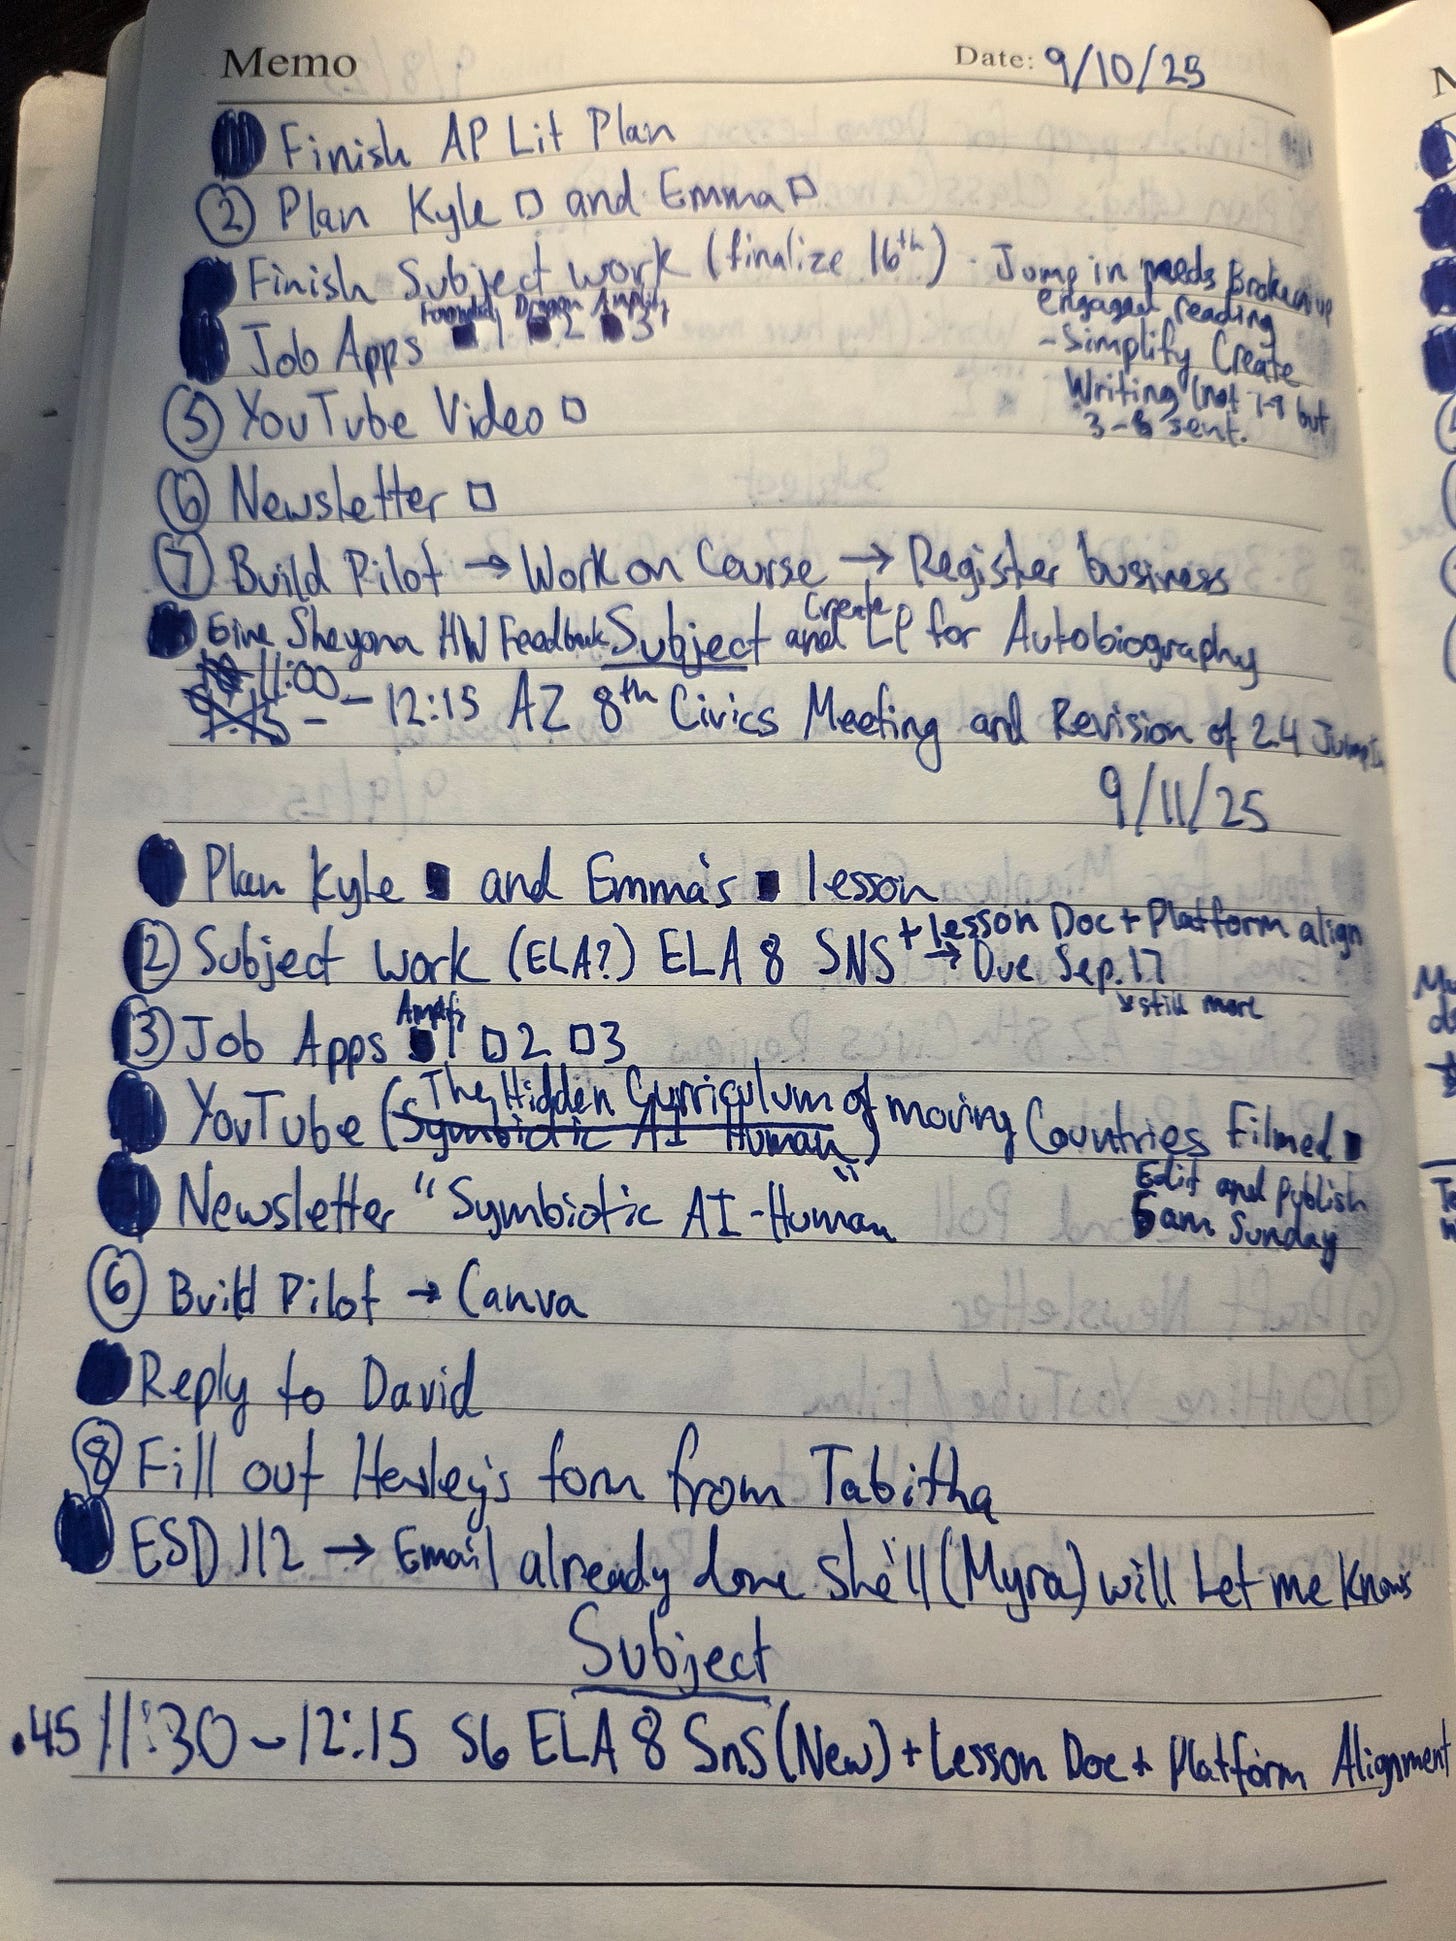 Memo Date: 9/10/25
Finish AP Lit Plan
② Plan Kyle □ and Emma □
Finish Subject work (finalize 16th) - Jump in needs Broken up
engaged reading
Job Apps ■ 1 ■ 2 ■ 3
Dragon Amplify
- Simplify Create
Writing (not 7-9 but
3-5 sent.
⑤ YouTube Video □
⑥ Newsletter □
⑦ Build Pilot → Work on Course → Register business
Give Sheyona HW Feedback Subject and Create LP for Autobiography
11:00 - 12:15 AZ 8th Civics Meeting and Revision of 2.4 Jump In
9/11/25
Plan Kyle ■ and Emma's ■ lesson
② Subject work (ELA?) ELA 8 SNS + Lesson Doc + Platform align
→ Due Sep. 17
↘ still more
Amplify
③ Job Apps ■ 1 □ 2 □ 3
YouTube (The Hidden Curriculum of moving Countries Filmed ■
Symbiotic AI Human)
Edit and publish
5am Sunday
Newsletter "Symbiotic AI-Human"
⑥ Build Pilot → Canva
Reply to David
⑧ Fill out form from Tabitha
ESD 112 → Email already done she'll (Myra) will Let me know
Subject
.45 11:30 - 12:15 S6 ELA 8 SnS (New) + Lesson Doc + Platform Alignment